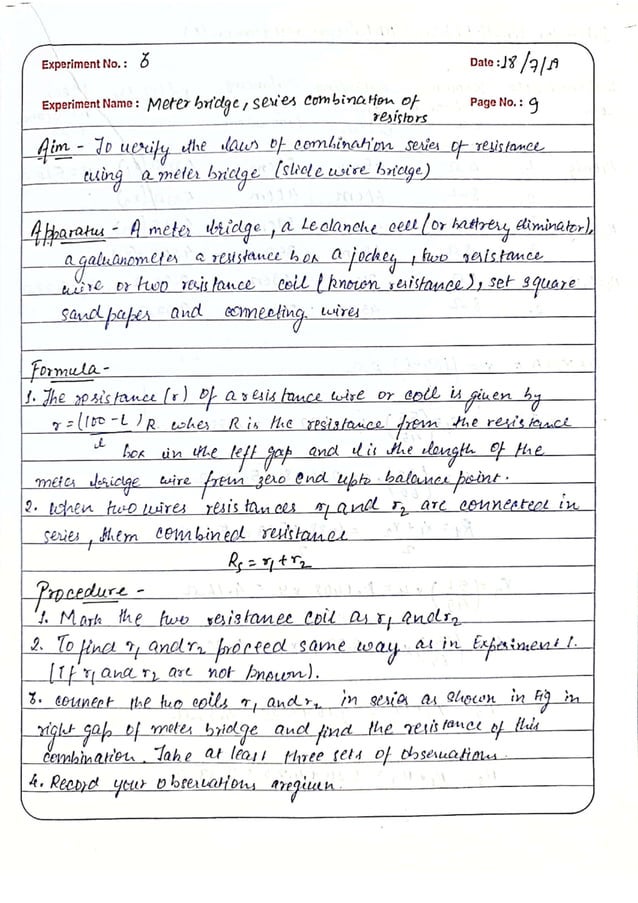 Experiment No. : 3
Date : 18/7/19
Experiment Name : Meter bridge, series combination of
resistors
Page No. : 9
Aim - To verify the laws of combination series of resistance
using a meter bridge (slide wire bridge)
Apparatus - A meter bridge, a Leclanche cell (or battrery eliminator),
a galvanometer a resistance box a jockey, two resistance
wire or two resistance coil (known resistance), set square
sand paper and connecting wires
Formula -
1. The resistance (r) of a resistance wire or coil is given by
r = (100 - L) R wher R is the resistance from the resistance
l
box in the left gap and l is the length of the
meter bridge wire from zero end upto balance point.
2. When two wires resistances r1 and r2 are connected in
series, them combined resistance
Rs = r1 + r2
Procedure -
1. Mark the two resistance coil as r1 and r2
2. To find r1 and r2 proceed same way as in Experiment 1.
(If r1 and r2 are not known).
3. Connect the two coils r1 and r2 in series as shown in fig in
right gap of meter bridge and find the resistance of this
combination. Take at least three sets of observations.
4. Record your observations